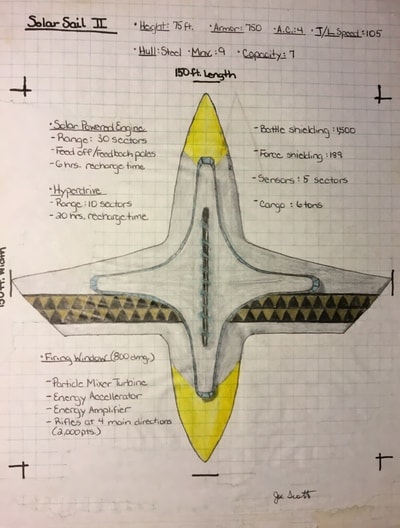 Solar Sail II
• Height: 75 ft. • Armor: 750 • A.C.: 4 • T/L Speed: 105
• Hull: Steel • Mav.: 9 • Capacity: 7
150 ft. Length
• Solar Powered Engine
- Range: 30 sectors
- Feed off/feedback poles
- 6 hrs. recharge time
• Hyperdrive
- Range: 10 sectors
- 20 hrs. recharge time
- Battle shielding: 1,500
- Force shielding: 199
- Sensors: 5 sectors
- Cargo: 6 tons
150 ft. Width
• Firing Window (800 dmg.)
- Particle Mixor Turbine
- Energy Accellerator
- Energy Amplifier
- Rifles at 4 main directions
(2,000 pts.)
Joe Scott